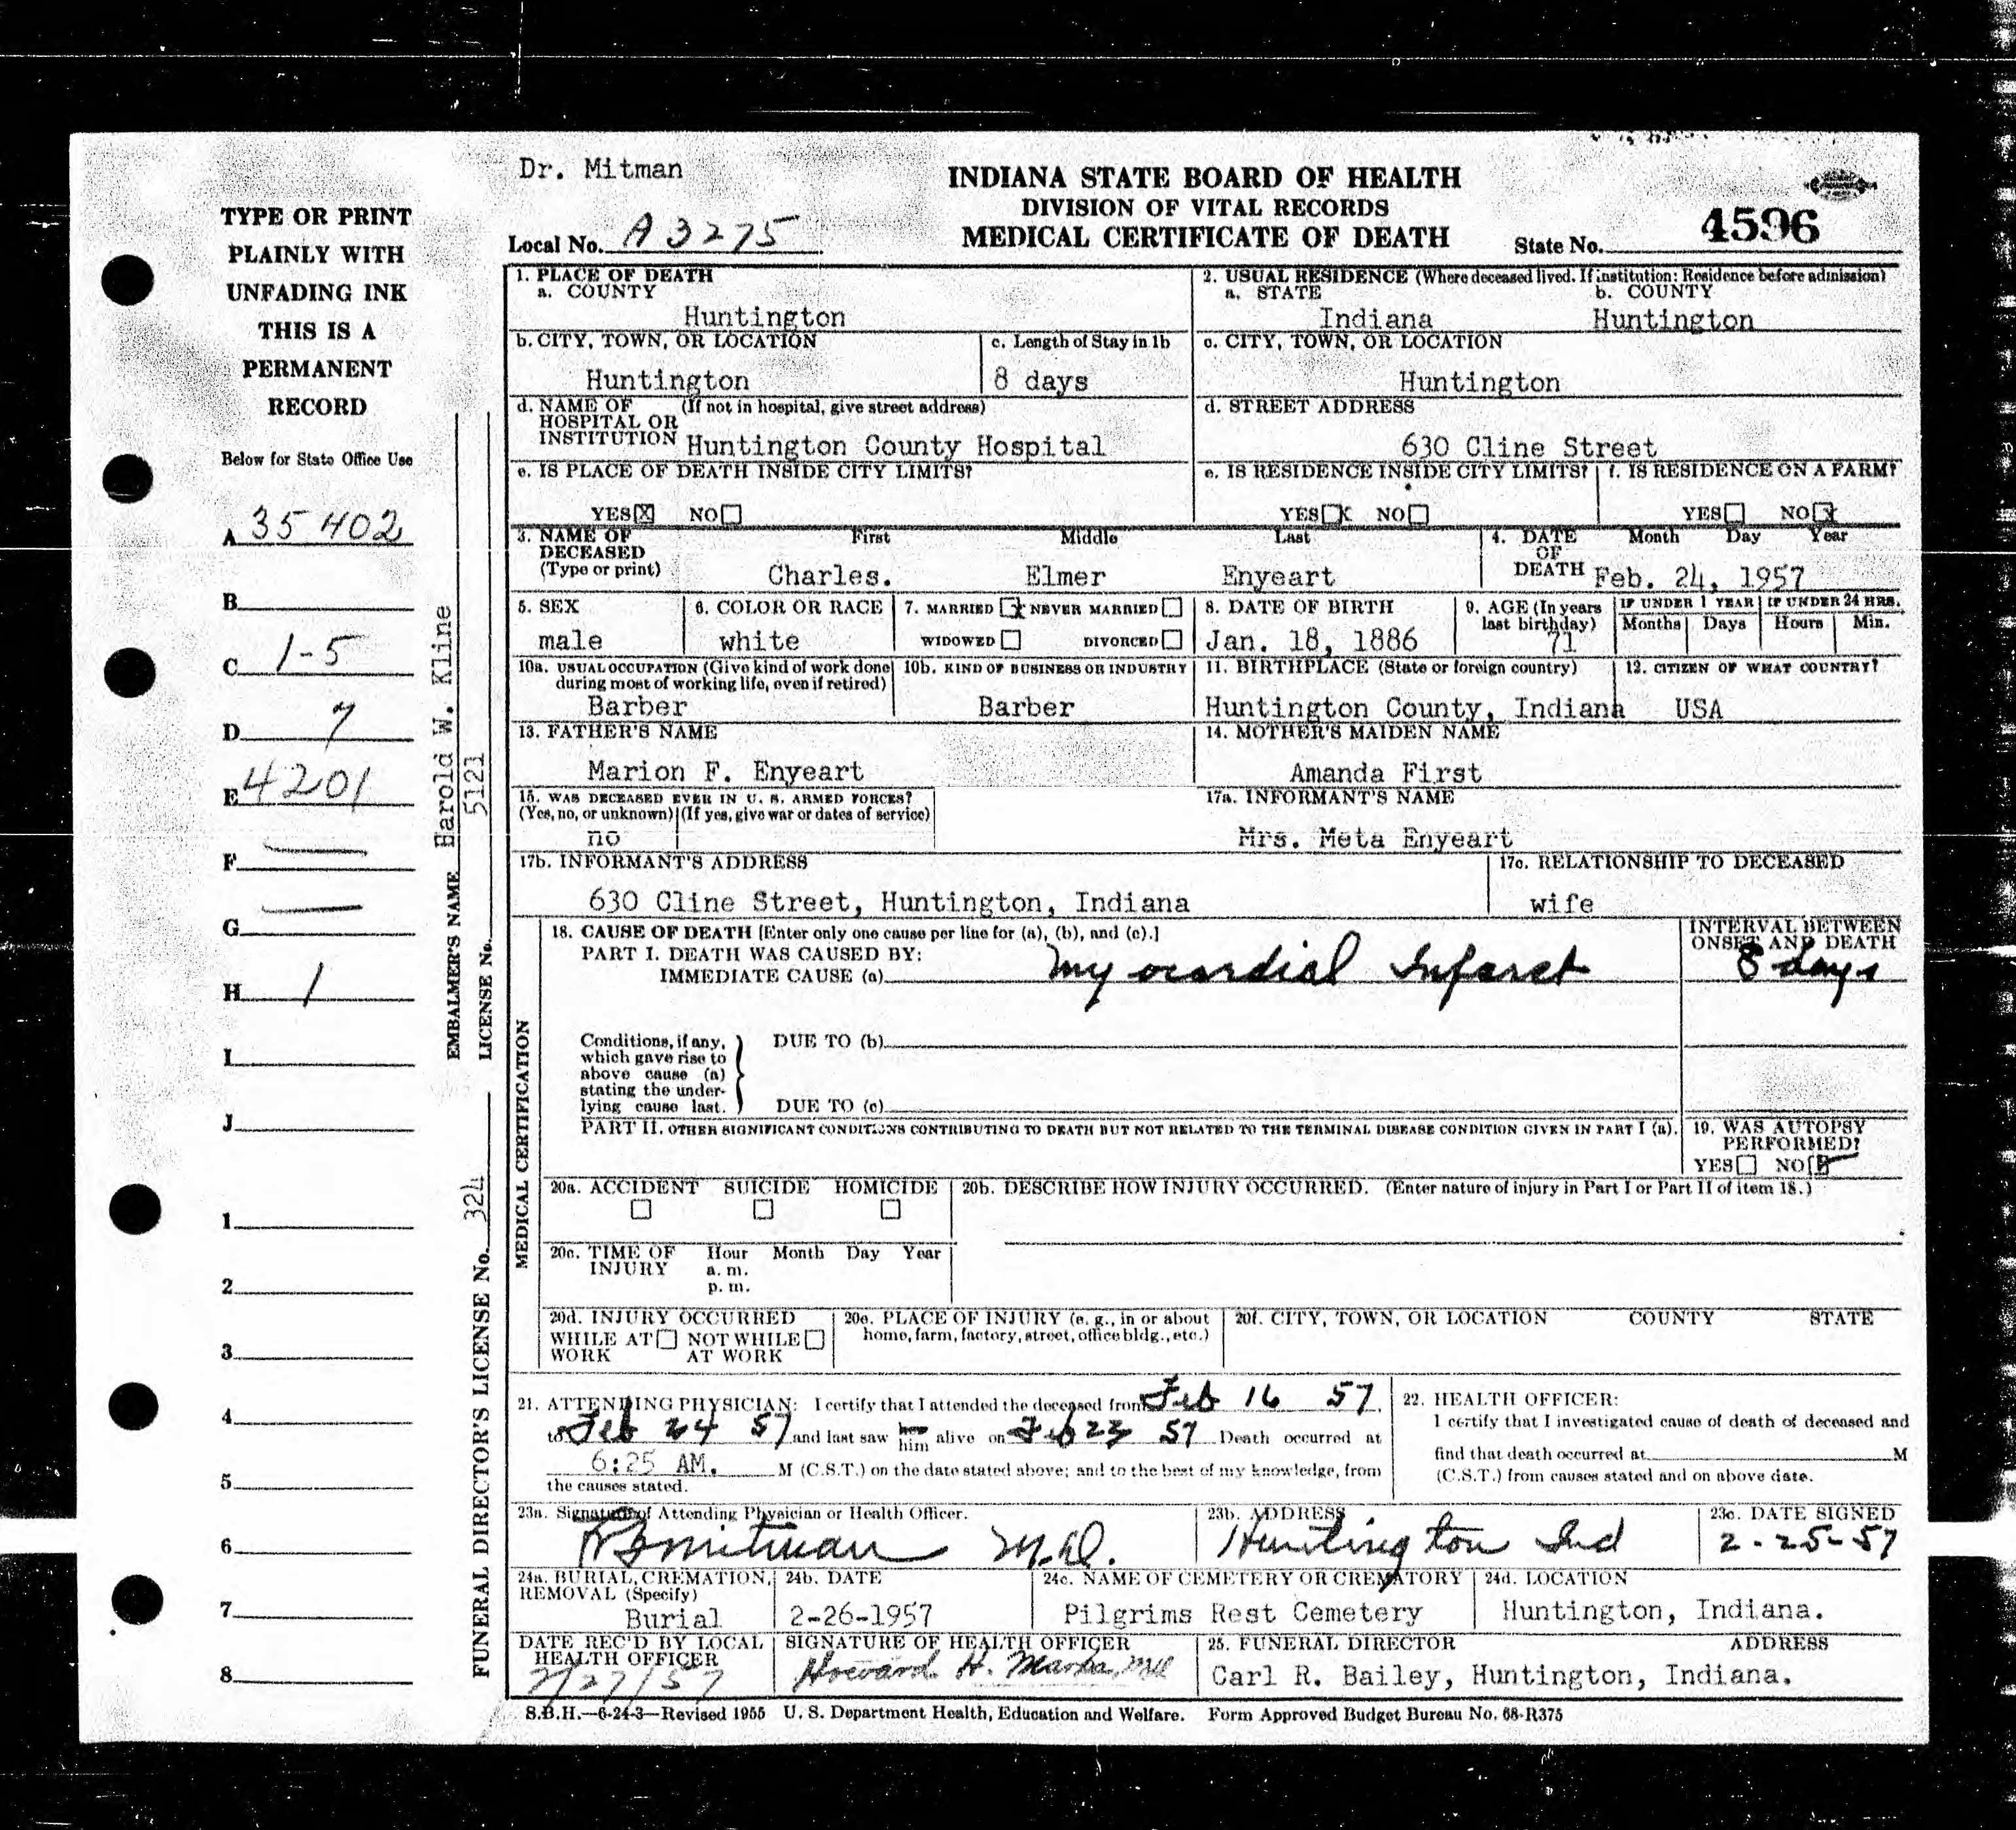 Dr. Mitman
INDIANA STATE BOARD OF HEALTH
DIVISION OF VITAL RECORDS
MEDICAL CERTIFICATE OF DEATH
Local No. A 3275
State No. 4596
TYPE OR PRINT
PLAINLY WITH
UNFADING INK
THIS IS A
PERMANENT
RECORD
Below for State Office Use
A 35402
B
C 1-5
D 7
E 4201
F —
G —
H 1
I
J
1
2
3
4
5
6
7
8
EMBALMER'S NAME Harold W. Kline
LICENSE No. 5121
FUNERAL DIRECTOR'S LICENSE No. 324
1. PLACE OF DEATH
a. COUNTY
Huntington
2. USUAL RESIDENCE (Where deceased lived. If institution: Residence before admission)
a. STATE b. COUNTY
Indiana Huntington
b. CITY, TOWN, OR LOCATION
Huntington
c. Length of Stay in 1b
8 days
c. CITY, TOWN, OR LOCATION
Huntington
d. NAME OF (If not in hospital, give street address)
HOSPITAL OR
INSTITUTION Huntington County Hospital
d. STREET ADDRESS
630 Cline Street
e. IS PLACE OF DEATH INSIDE CITY LIMITS?
YES X NO
e. IS RESIDENCE INSIDE CITY LIMITS?
YES X NO
f. IS RESIDENCE ON A FARM?
YES NO X
3. NAME OF First Middle Last
DECEASED
(Type or print) Charles. Elmer Enyeart
4. DATE Month Day Year
OF
DEATH Feb. 24, 1957
5. SEX
male
6. COLOR OR RACE
white
7. MARRIED X NEVER MARRIED
WIDOWED DIVORCED
8. DATE OF BIRTH
Jan. 18, 1886
9. AGE (In years
last birthday)
71
IF UNDER 1 YEAR
Months Days
IF UNDER 24 HRS.
Hours Min.
10a. USUAL OCCUPATION (Give kind of work done
during most of working life, even if retired)
Barber
10b. KIND OF BUSINESS OR INDUSTRY
Barber
11. BIRTHPLACE (State or foreign country)
Huntington County, Indiana
12. CITIZEN OF WHAT COUNTRY?
USA
13. FATHER'S NAME
Marion F. Enyeart
14. MOTHER'S MAIDEN NAME
Amanda First
15. WAS DECEASED EVER IN U. S. ARMED FORCES?
(Yes, no, or unknown) (If yes, give war or dates of service)
no
17a. INFORMANT'S NAME
Mrs. Meta Enyeart
17b. INFORMANT'S ADDRESS
630 Cline Street, Huntington, Indiana
17c. RELATIONSHIP TO DECEASED
wife
MEDICAL CERTIFICATION
18. CAUSE OF DEATH [Enter only one cause per line for (a), (b), and (c).]
PART I. DEATH WAS CAUSED BY:
IMMEDIATE CAUSE (a) Myocardial Infarct
INTERVAL BETWEEN
ONSET AND DEATH
8 days
Conditions, if any,
which gave rise to
above cause (a)
stating the under-
lying cause last.
DUE TO (b)
DUE TO (c)
PART II. OTHER SIGNIFICANT CONDITIONS CONTRIBUTING TO DEATH BUT NOT RELATED TO THE TERMINAL DISEASE CONDITION GIVEN IN PART I (a).
19. WAS AUTOPSY
PERFORMED?
YES NO
20a. ACCIDENT SUICIDE HOMICIDE
20b. DESCRIBE HOW INJURY OCCURRED. (Enter nature of injury in Part I or Part II of item 18.)
20c. TIME OF Hour Month Day Year
INJURY a. m.
p. m.
20d. INJURY OCCURRED
WHILE AT NOT WHILE
WORK AT WORK
20e. PLACE OF INJURY (e. g., in or about
home, farm, factory, street, office bldg., etc.)
20f. CITY, TOWN, OR LOCATION COUNTY STATE
21. ATTENDING PHYSICIAN: I certify that I attended the deceased from Feb 16 57
to Feb 24 57 and last saw her him alive on Feb 23 57 Death occurred at
6:25 AM. M (C.S.T.) on the date stated above; and to the best of my knowledge, from
the causes stated.
22. HEALTH OFFICER:
I certify that I investigated cause of death of deceased and
find that death occurred at M
(C.S.T.) from causes stated and on above date.
23a. Signature of Attending Physician or Health Officer.
Mitman M.D.
23b. ADDRESS
Huntington Ind
23c. DATE SIGNED
2-25-57
24a. BURIAL, CREMATION,
REMOVAL (Specify)
Burial
24b. DATE
2-26-1957
24c. NAME OF CEMETERY OR CREMATORY
Pilgrims Rest Cemetery
24d. LOCATION
Huntington, Indiana.
DATE REC'D BY LOCAL
HEALTH OFFICER
2/27/57
SIGNATURE OF HEALTH OFFICER
Howard H. Marks, MD
25. FUNERAL DIRECTOR ADDRESS
Carl R. Bailey, Huntington, Indiana.
S.B.H.—6-24-3—Revised 1955 U. S. Department Health, Education and Welfare. Form Approved Budget Bureau No. 68-R375